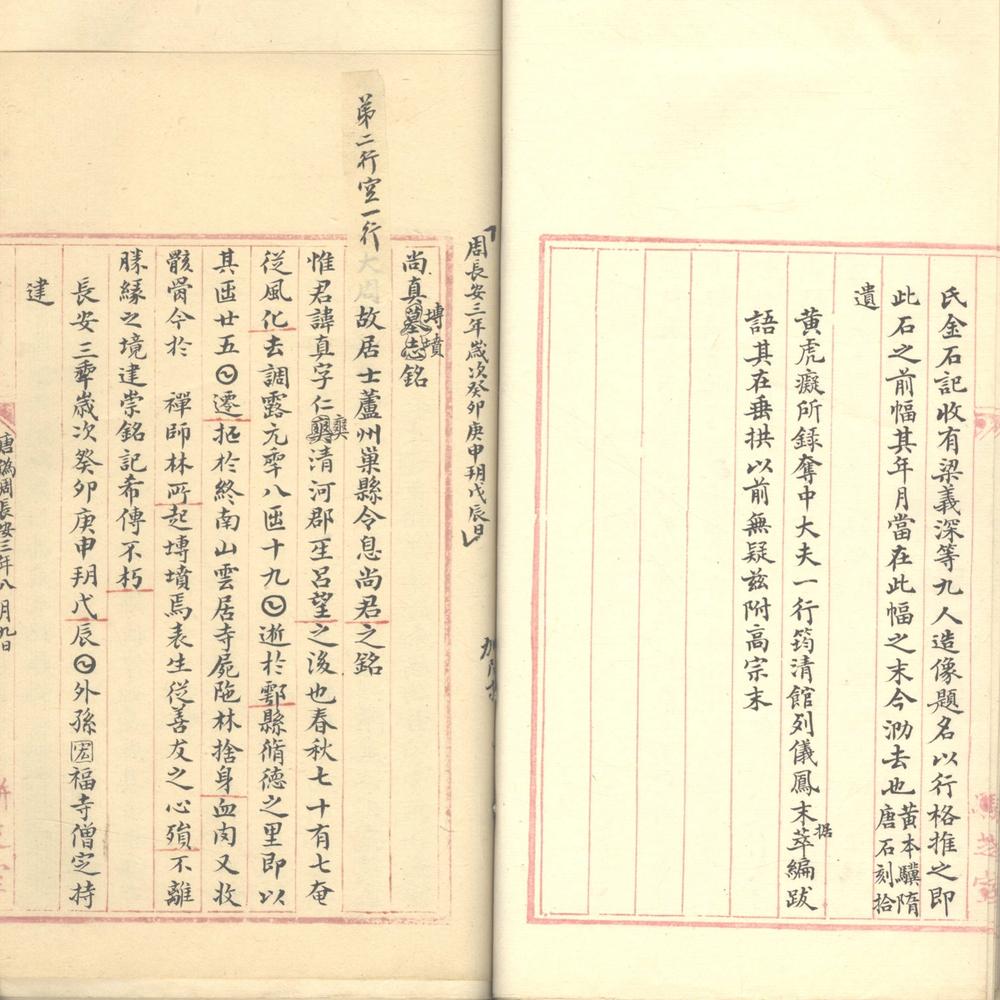 氏金石記收有梁義深等九人造像題名以行格推之即
此石之前幅其年月當在此幅之末今泐去也黃本驥隋唐石刻拾
遺
黃虎癡所錄奪中大夫一行筠清館列儀鳳末萃編跋
据
語其在垂拱以前無疑茲附高宗末
周長安三年歲次癸卯庚申玥戊辰日
尚真墓志銘
塼墳
弟二行空一行
大周故居士蘆州巢縣令息尚君之銘
惟君諱真字仁奭清河郡𤯔呂望之後也春秋七十有七奄
奭
從風化去調露元𠡦八𠥱十九𡆠逝於鄠縣脩德之里即以
其𠥱廿五𡆠遷柩於終南山雲居寺屍陁林捨身血肉又收
骸骨今於 禪師林所起塼墳焉表生從善友之心殞不離
勝緣之境建崇銘記希傳不朽
長安三𠡦歲次癸卯庚申玥戊辰𡆠外孫宏福寺僧定持
建
唐僞周長安三年八月九日